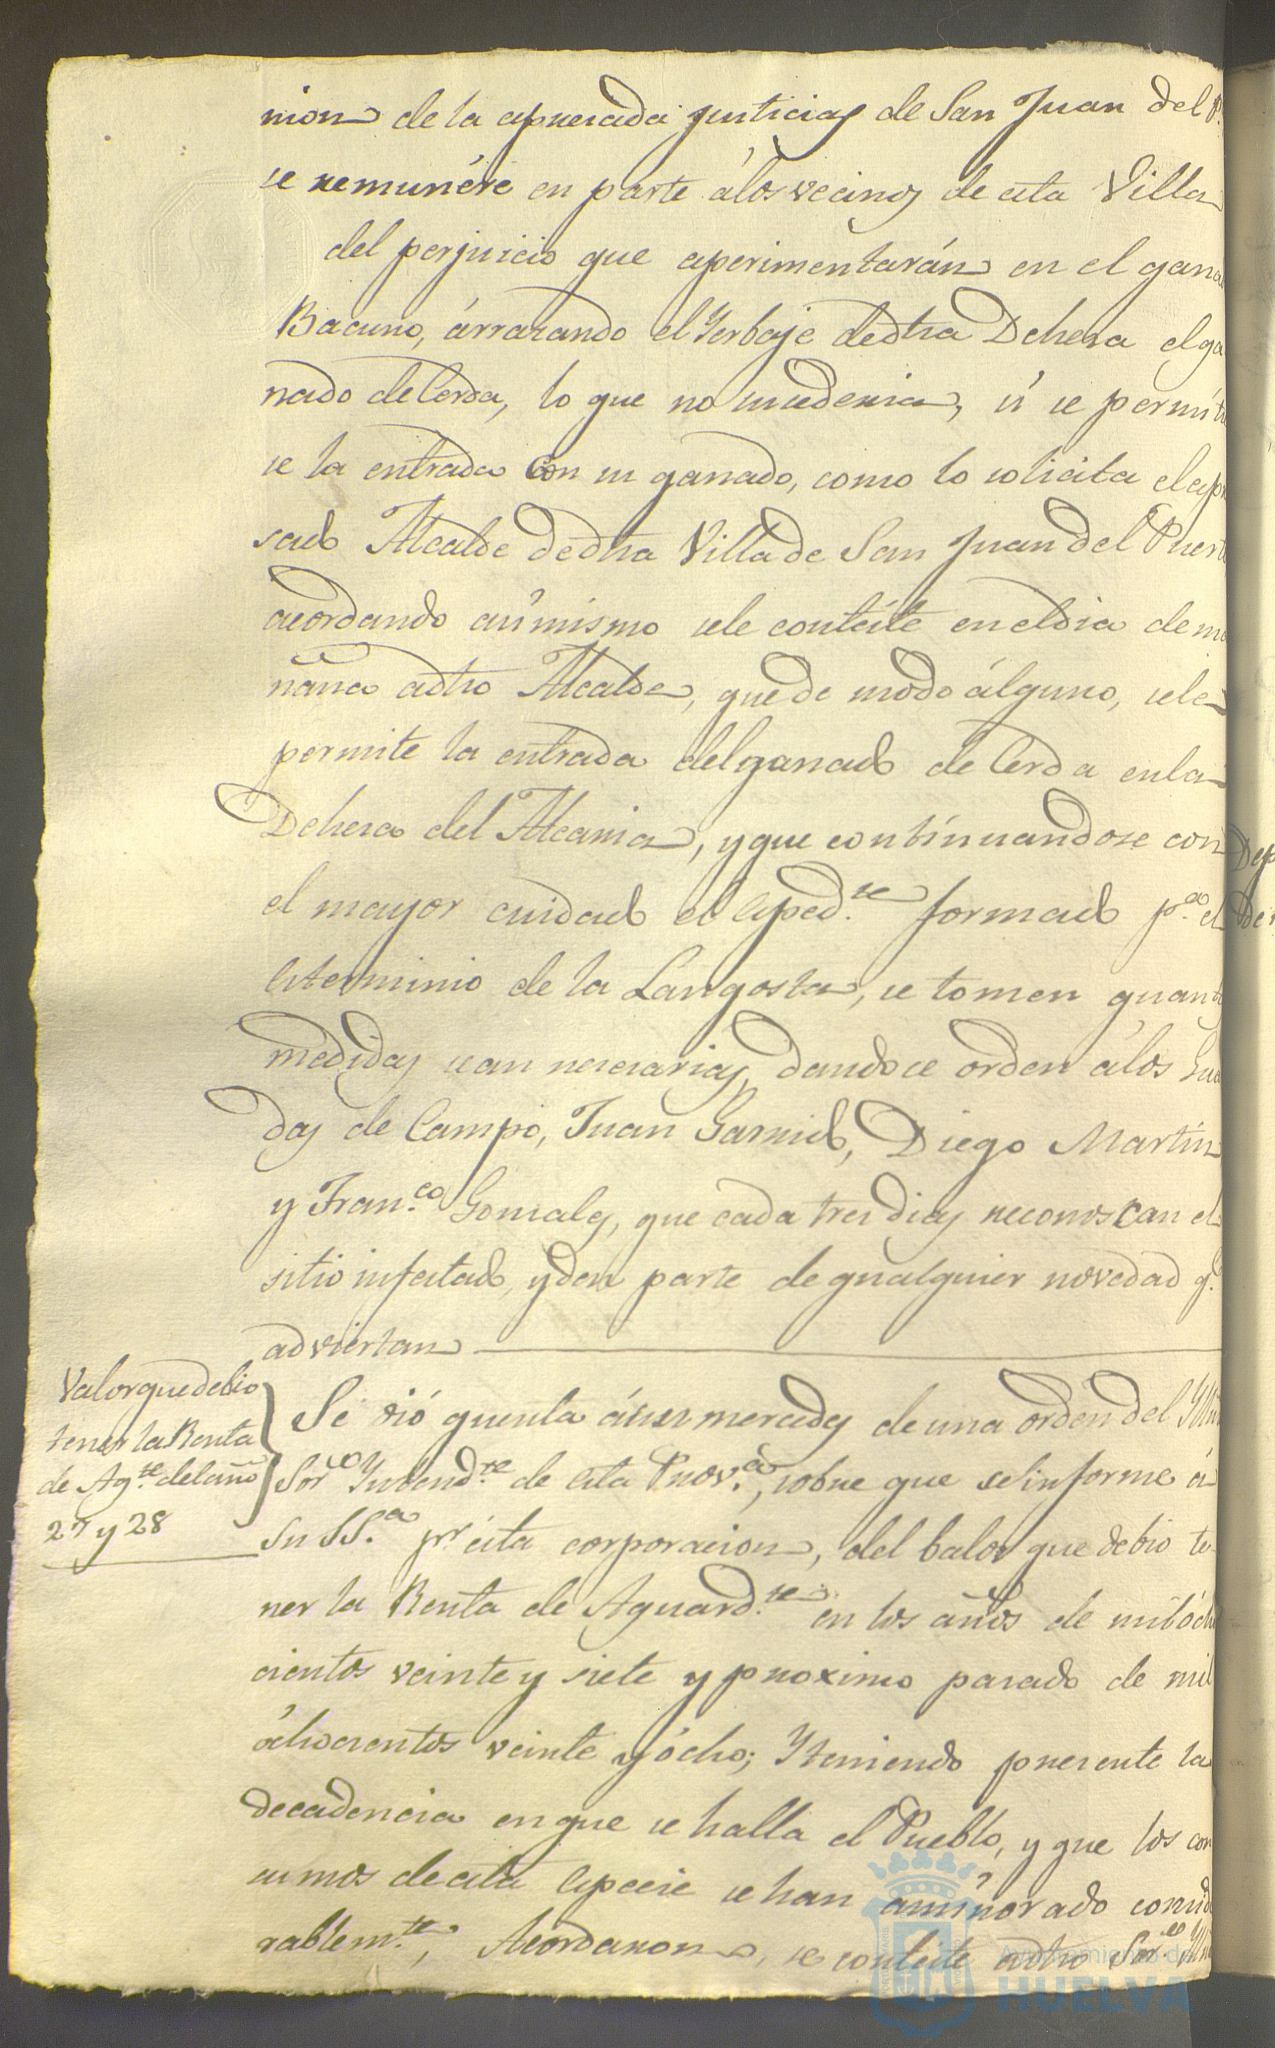 nion de la apresada justicia de San Juan del P.
se remunére en parte á los vecinos de esta Villa
del perjuicio que esperimentarán en el gana
Bacuno, árrazando el Yerbaje de dha Dehesa el ga
nado de Cerda, lo que no sucederia, si se permiti
se la entrada con su ganado, como lo solicita el espre
sado Alcalde de dha Villa de San Juan del Puerto
acordando asi mismo sele contéste en el dia de ma
ñana a dho Alcalde, que de modo álguno, sele
permite la entrada del ganado de Cerda en la
Dehesa del Alcania, y que continuandose con
el mayor cuidado el Esped.te formado p.a el
Esterminio de la Langosta, se tomen quanta
medidas sean nesesarias, dandose orden á los Gua
das de Campo, Juan Garrido, Diego Martin
y Fran.co Gonsales, que cada tres dias reconoscan el
sitio infestado, y den parte de qualquier novedad q.e
adviertan
Valor que debio
tener la Renta
de Ag.te del año
27 y 28
Se dió quenta á sus mercedes de una orden del Yllmo
Sor Yntend.te de esta Prov.a, sobre que se informe á
Su SS.a pr esta corporacion, del balor que debio te
ner la Renta de Aguard.te en los años de mil ócho
cientos veinte y siete y proximo pasado de mil
óchocientos veinte y ócho; Y teniendo presente la
decadencia en que se halla el Pueblo, y que los con
sumos de esta Especie se han aminorado conside
rablem.te, Acordaron, se conteste a dho Sor. Yllmo
Ayuntamiento de
HUELVA